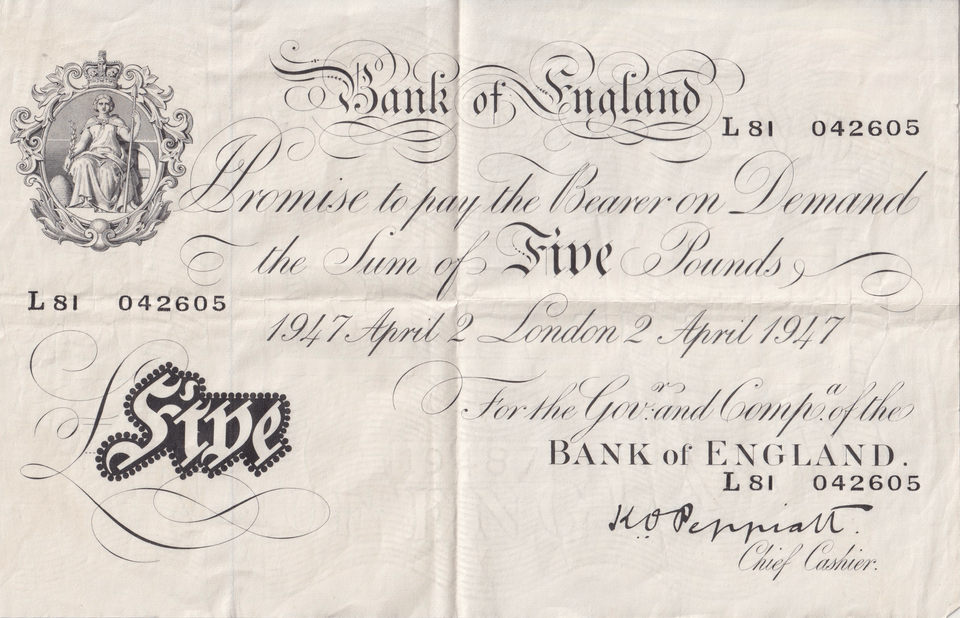 Bank of England
L 81 042605
I Promise to pay the Bearer on Demand
the Sum of Five Pounds
L 81 042605
1947 April 2 London 2 April 1947
For the Gov.r and Comp.a of the
BANK of ENGLAND.
L 81 042605
£ Five
K O Peppiatt.
Chief Cashier.